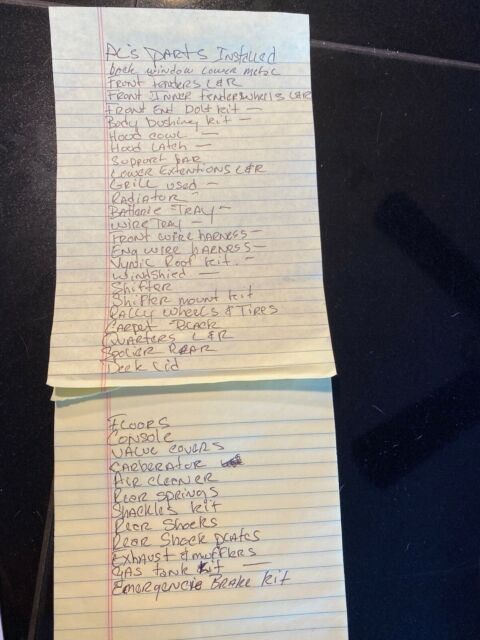 AC's PARTS Installed
Deck window Lower metal
Front fenders L&R
Front Inner fender wheels L&R
Front End Bolt kit —
Body bushing kit —
Hood cowl —
Hood Latch —
Support bar
Lower Extentions L&R
Grill used —
Radiator —
Batterie TRAY —
WIRE TRAY —
Front wire harness —
Eng wire harness —
Vynic Roof kit. —
Windshied —
Shifter
Shifter mount kit
Rally wheels & Tires
Carpet Black
Quarters L&R
Spolier Rear
Deck Lid
Floors
Console
Value covers
Carberator
Air cleaner
Rear Springs
Shackles kit
Rear Shocks
Rear Shock plates
Exhaust & mufflers
Gas tank kit —
Emergencie Brake kit